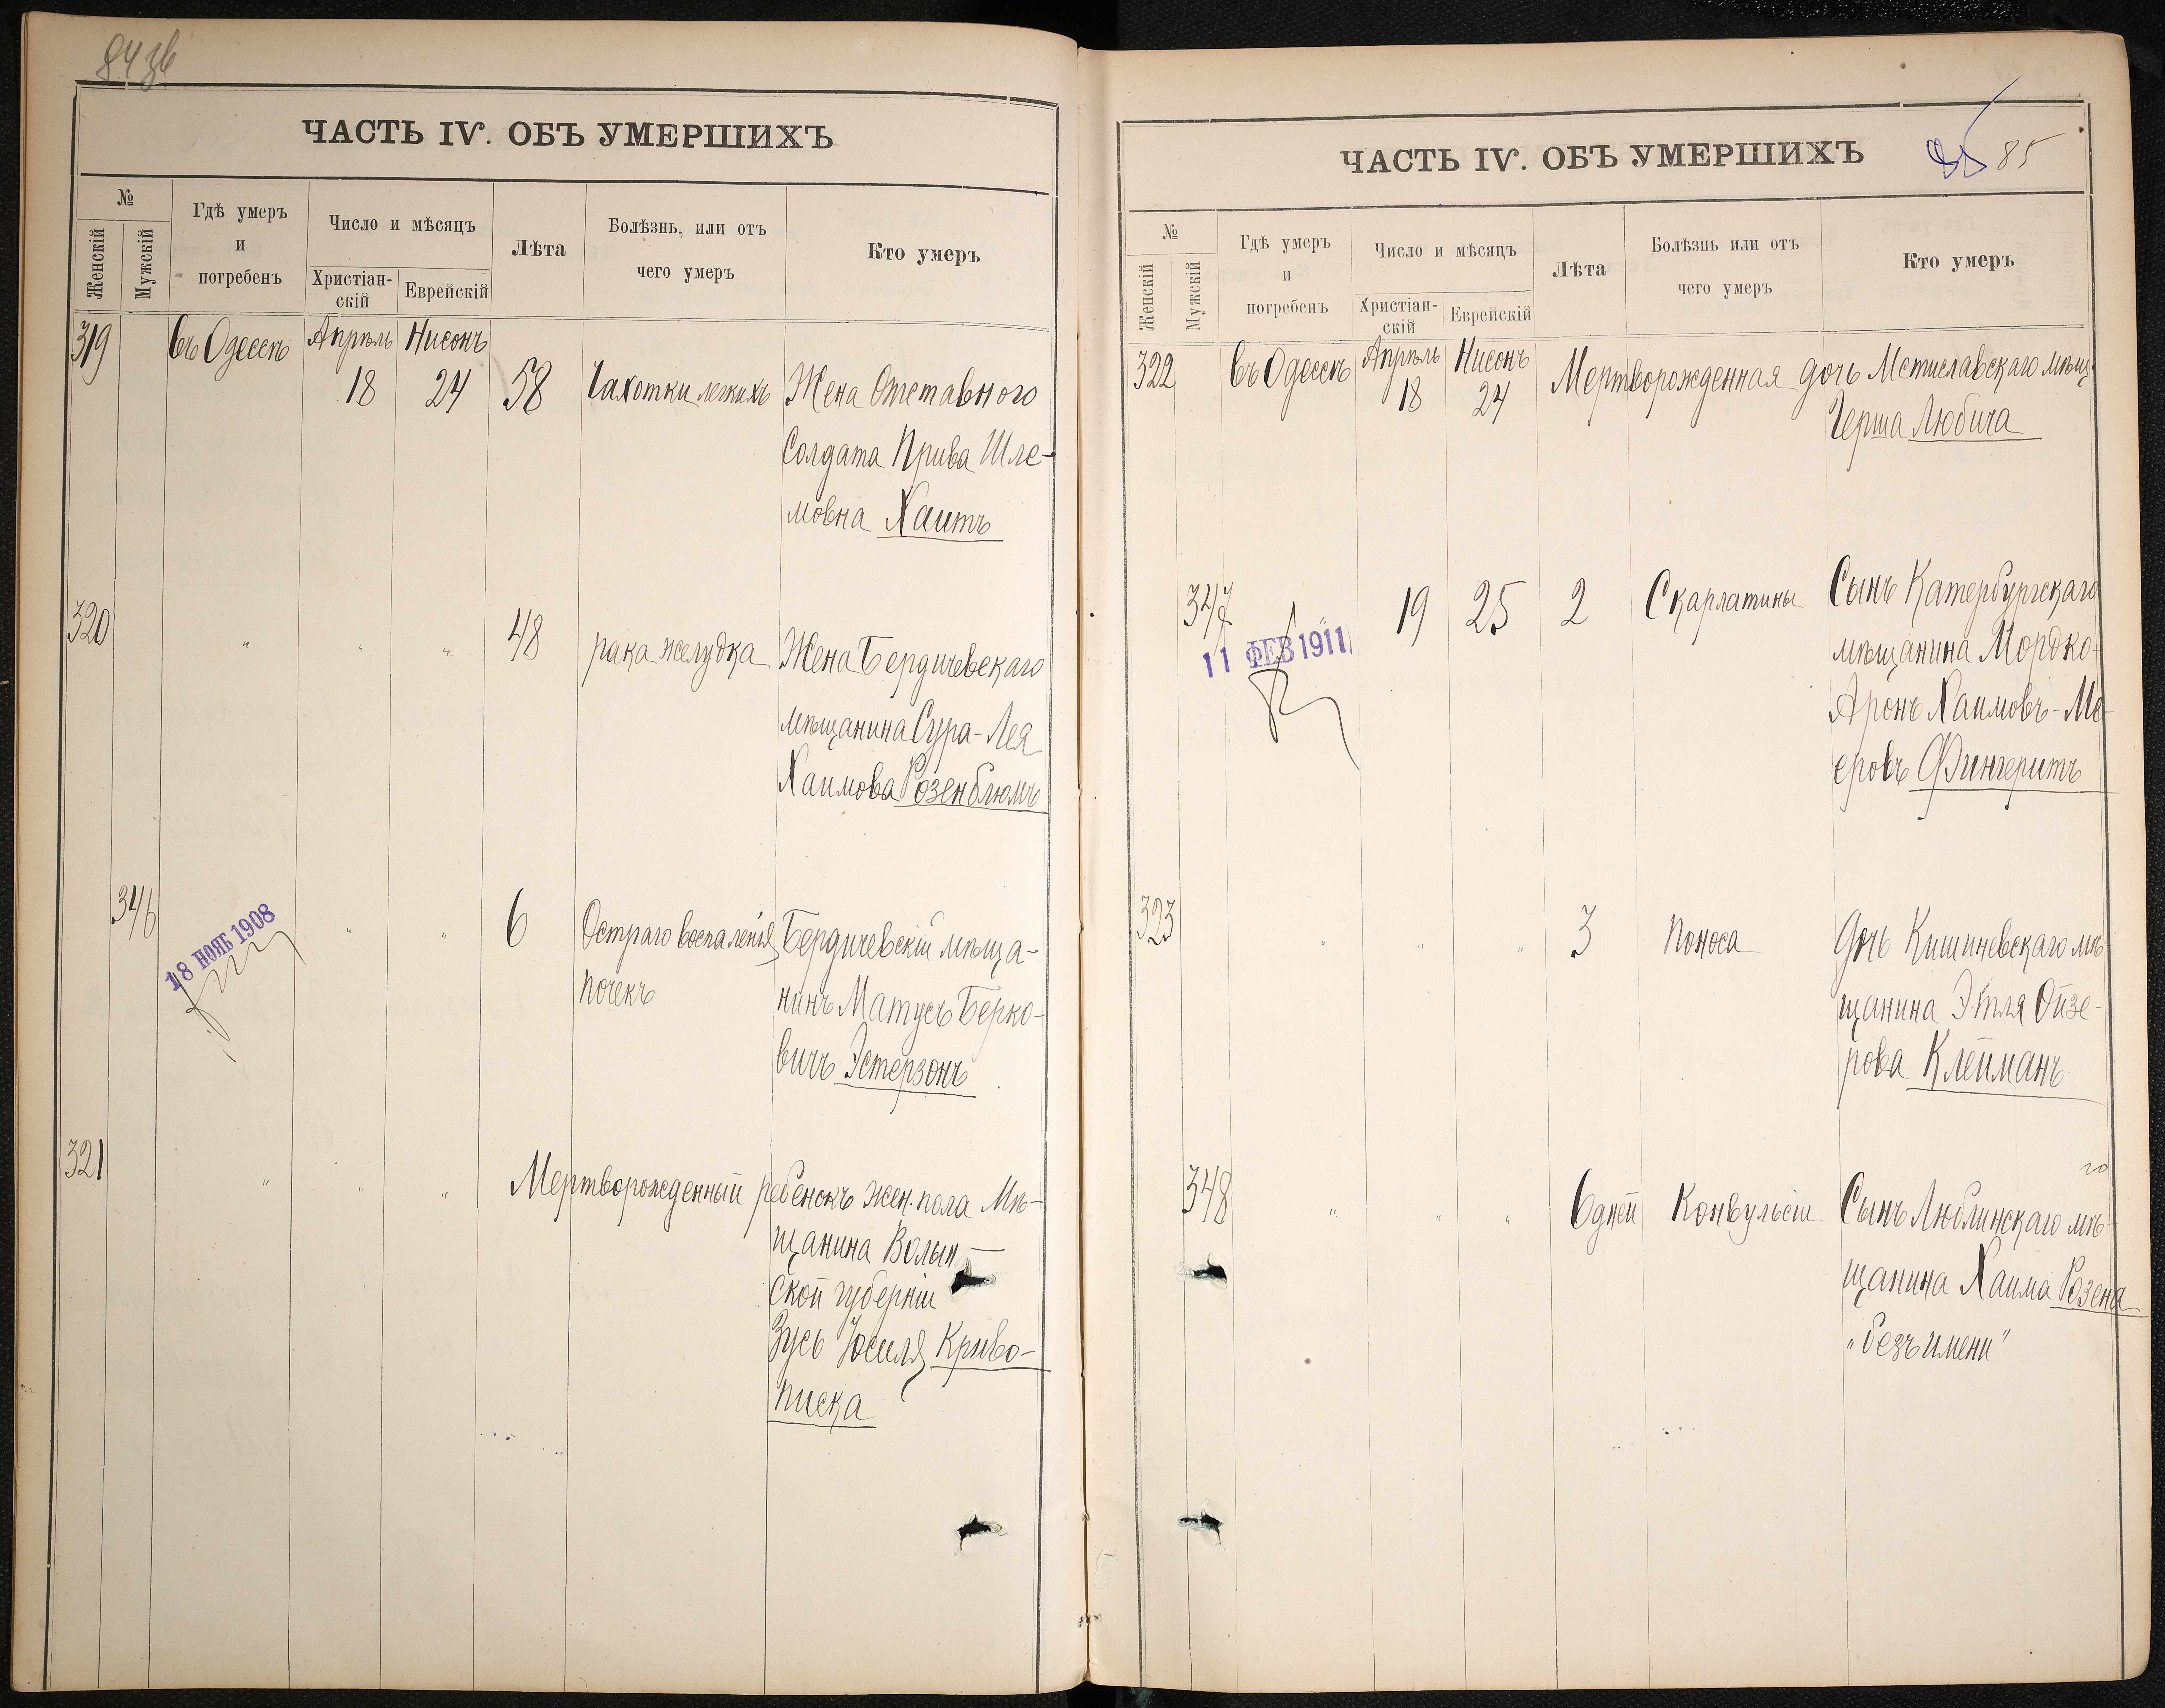 84 зв
ЧАСТЬ IV. ОБЪ УМЕРШИХЪ
№
Женскій
Мужскій
Гдѣ умеръ
и
погребенъ
Число и мѣсяцъ
Христіан-
скій
Еврейскій
Лѣта
Болѣзнь, или отъ
чего умеръ
Кто умеръ
319 въ Одессѣ Апрѣль Нисонъ
18 24 58 Чахотки легкихъ Жена Отставного
Солдата Прива Шле-
мовна Хаитъ
320 " " " 48 рака желудка Жена Бердичевскаго
мѣщанина Сура-Лея
Хаимова Розенблюмъ
346 " " 6 Остраго воспаленія Бердичевскій мѣща-
почекъ нинъ Матусъ Берко-
вичъ Эстерзонъ
18 НОЯБ 1908
321 " " " Мертворожденный ребенокъ жен. пола Мѣ-
щанина Волын-
ской губерніи
Зусь Іосиля Криво-
писка
ЧАСТЬ IV. ОБЪ УМЕРШИХЪ
85 85
№
Женскій
Мужскій
Гдѣ умеръ
и
погребенъ
Число и мѣсяцъ
Христіан-
скій
Еврейскій
Лѣта
Болѣзнь или отъ
чего умеръ
Кто умеръ
322 въ Одессѣ Апрѣль Нисонъ
18 24 Мертворожденная дочь Мстиславскаго мѣщ.
Герша Любича
347 " 19 25 2 Скарлатины Сынъ Катербургскаго
мѣщанина Мордко-
Аронъ Хаимовъ-Ме-
еровъ Фингеритъ
11 ФЕВ 1911
323 " " " 3 Поноса Дочь Кишиневскаго мѣ-
щанина Этля Ойзе-
рова Клейманъ
348 " " " 6 дней Конвульсіи Сынъ Люблинскаго мѣ-
го
щанина Хаима Розена
"безъ имени"